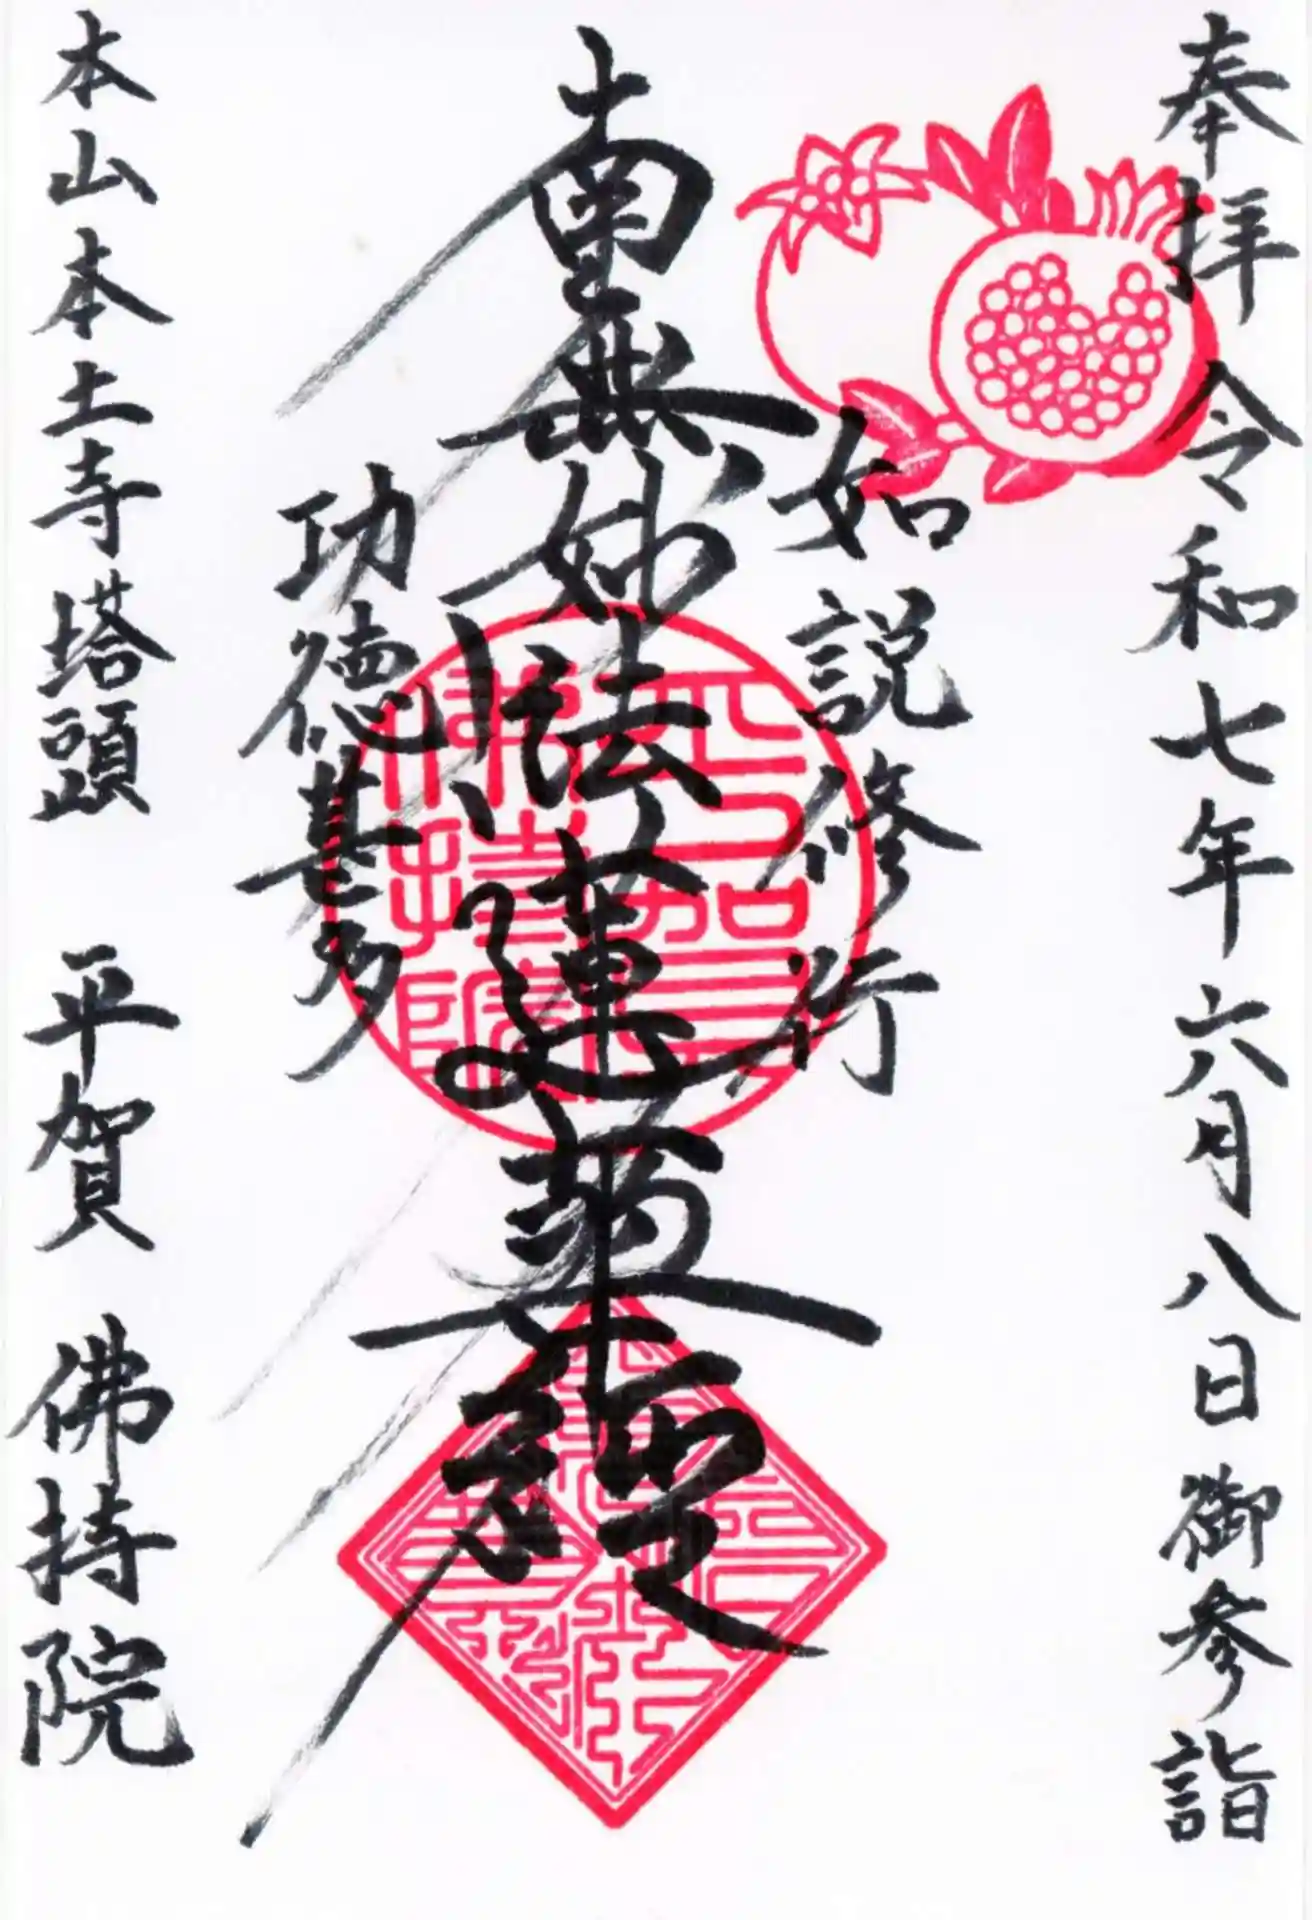 奉拝 令和七年六月八日 御参詣
如説修行
南無妙法蓮華経
功徳甚多
本山本土寺塔頭 平賀 佛持院
平賀
佛持院